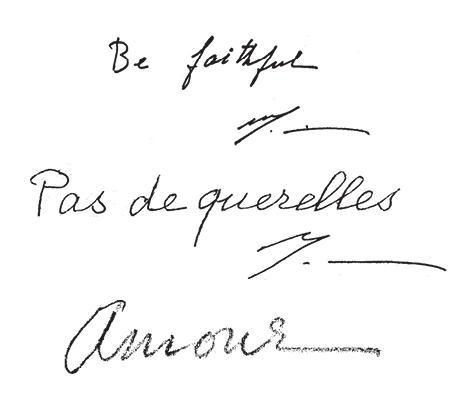 Be faithful
M.
Pas de querelles
M.
Amour